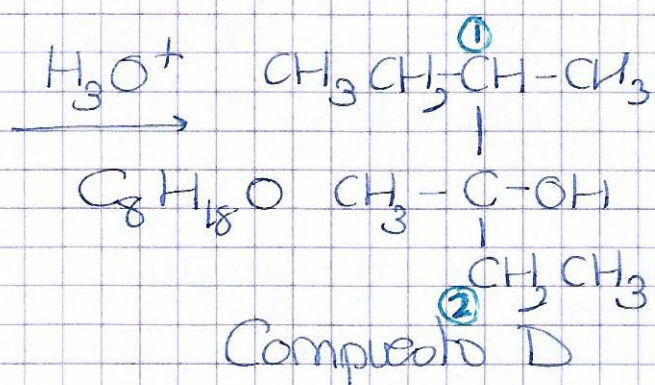 ①
H₃O⁺ CH₃CH₂-CH-CH₃
C₈H₁₈O CH₃-C-OH
CH₂CH₃
②
Compuesto D